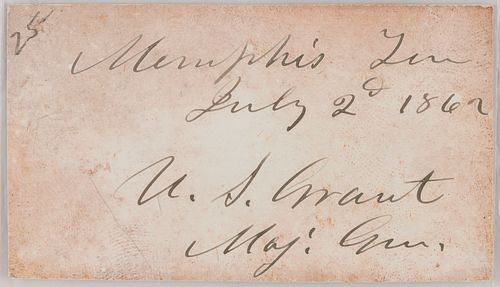 25
Memphis Ten
July 2d 1862
U. S. Grant
Maj. Gen.